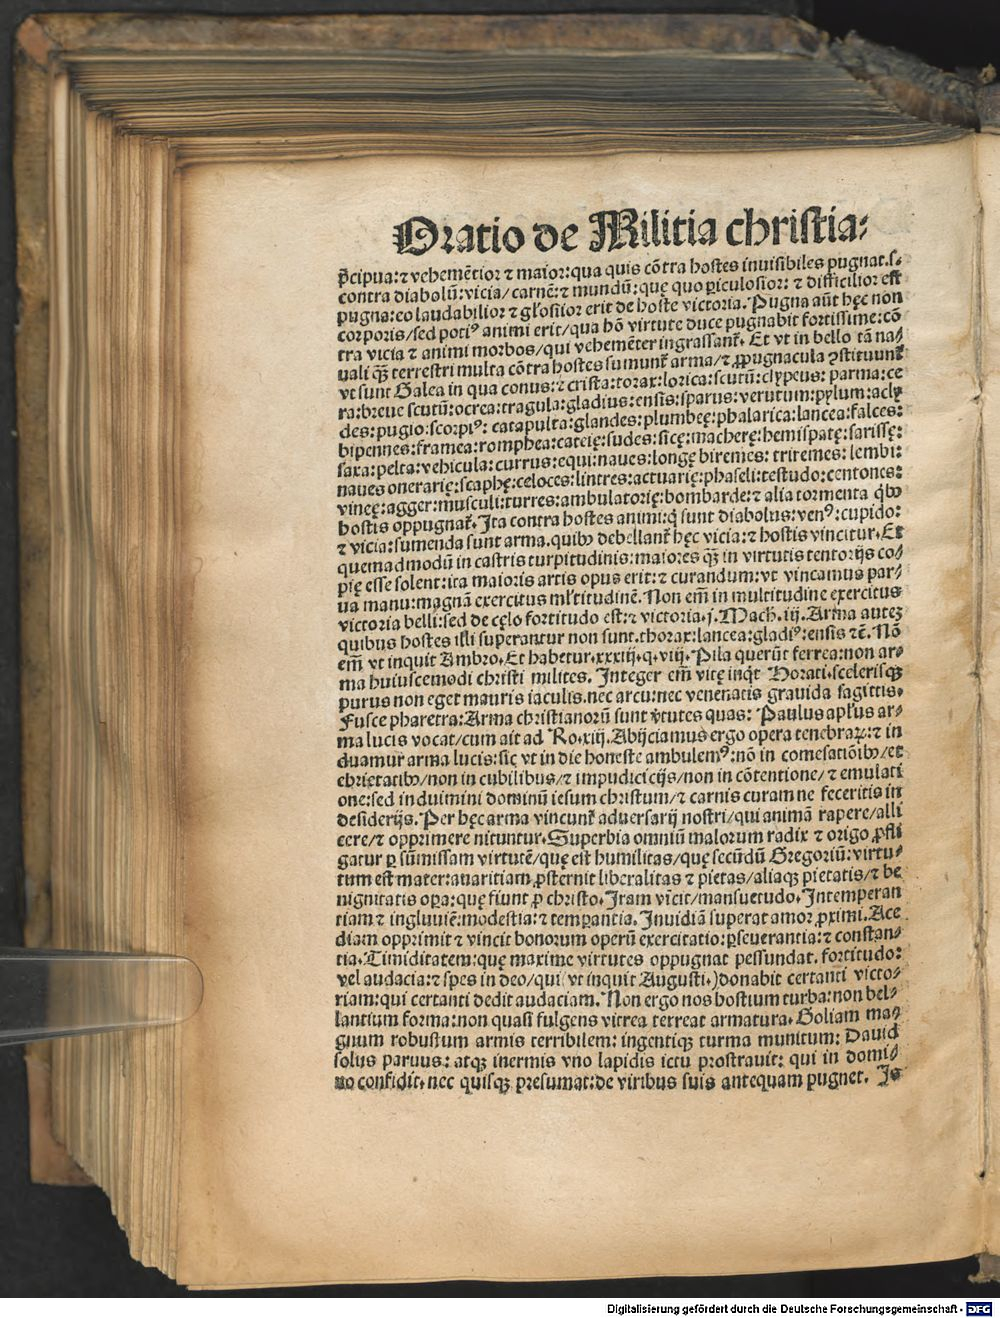 Oratio de Militia christia⸗
p̄cipua:⁊ vehemẽtior ⁊ maior:qua quis cõtra hostes inuisibiles pugnat.ſ.
contra diabolũ:vicia/carnẽ:⁊ mundũ:quę quo ꝑiculosior:⁊ difficilior est
pugna:eo laudabilior ⁊ gl'osior erit de hoste victoria.Pugna aũt hęc non
corporis/sed potiꝰ animi erit/qua hõ virtute duce pugnabit fortissime:cõ
tra vicia ⁊ animi morbos/qui vehemẽter ingrassant̃. Et vt in bello tã na⸗
uali q̃ꝫ terrestri multa cõtra hostes sumunt̃ arma/⁊ ꝓpugnacula ꝯstituunt̃
vt sunt Galea in qua conus:⁊ crista:torax:lorica:scutũ:clypeus:parma:ce
ra:breue scutũ:ocrea:tragula:gladius:ensis:sparus:verutum:pylum:acly
des:pugio:scorpiꝰ:catapulta:glandes:plumbeę:phalarica:lancea:falces:
bipennes:framea:romphea:cateię:sudes:sicę:macherę:hemispatę:sarissę:
saxa:pelta:vehicula:currus:equi:naues:longę biremes:triremes:lembi:
naues onerarię:scaphę:celoces:lintres:actuarię:phaseli:testudo:centones:
vineę:agger:musculi:turres:ambulatorię:bombarde:⁊ alia tormenta q̃bꝫ
hostis oppugnat̃.Ita contra hostes animi:q̃ sunt diabolus:venꝰ:cupido:
⁊ vicia:sumenda sunt arma.quibꝫ debellant̃ hęc vicia:⁊ hostis vincitur.Et
quemadmodũ in castris turpitudinis:maiores q̃ꝫ in virtutis tentorijs co⸗
pię esse solent:ita maioris artis opus erit:⁊ curandum:vt vincamus par⸗
ua manu:magnã exercitus ml'titudinẽ.Non em̃ in multitudine exercitus
victoria belli:sed de cęlo fortitudo est:⁊ victoria.j.Mach.iij.Arma auteꝫ
quibus hostes illi superantur non sunt.thorax:lancea:gladiꝰ:ensis ⁊c̃.Nõ
em̃ vt inquit Ambro.Et habetur.xxxiij.q.viij.Pila querũt ferrea:non ar⸗
ma huiuscemodi christi milites. Integer em̃ vitę inq̃t Horati.scelerisqꝫ
purus non eget mauris iaculis.nec arcu:nec venenatis grauida sagittis.
Fusce pharetra:Arma christianorũ sunt v̓tutes quas: Paulus apl'us ar⸗
ma lucis vocat/cum ait ad Ro.xiij.Abijciamus ergo opera tenebraꝝ:⁊ in
duamur arma lucis:sic vt in die honeste ambulemꝰ:nõ in comesatiõibꝫ/et
ebrietatibꝫ/non in cubilibus/⁊ impudicicijs/non in cõtentione/⁊ emulati
one:sed induimini dominũ iesum christum/⁊ carnis curam ne feceritis in
desiderijs.Per hęc arma vincunt̃ aduersarij nostri/qui animã rapere/alli
cere/⁊ opprimere nituntur.Superbia omniũ malorum radix ⁊ origo ꝓfli
gatur ꝑ sũmissam virtutẽ/quę est humilitas/quę secũdũ Gregoriũ:virtu⸗
tum est mater:auaritiam ꝓsternit liberalitas ⁊ pietas/aliaqꝫ pietatis/⁊ be
nignitatis oꝑa:quę fiunt ꝓ christo.Iram vicit/mansuetudo.Intemperan
tiam ⁊ ingluuiẽ:modestia:⁊ temꝑantia.Inuidiã superat amor ꝓximi.Ace
diam opprimit ⁊ vincit bonorum operũ exercitatio:ꝑseuerantia:⁊ constan⸗
tia.Timiditatem:quę maxime virtutes oppugnat pessundat.fortitudo:
vel audacia:⁊ spes in deo/qui(vt inquit Augusti.)donabit certanti victo⸗
riam:qui certanti dedit audaciam.Non ergo nos hostium turba:non bel⸗
lantium forma:non quasi fulgens vitrea terreat armatura.Goliam ma⸗
gnum robustum armis terribilem:ingentiqꝫ turma munitum:Dauid
solus paruus:atqꝫ inermis vno lapidis ictu prostrauit:qui in domi⸗
no confidit.nec quisqꝫ presumat:de viribus suis antequam pugnet. Is
Digitalisierung gefördert durch die Deutsche Forschungsgemeinschaft - DFG